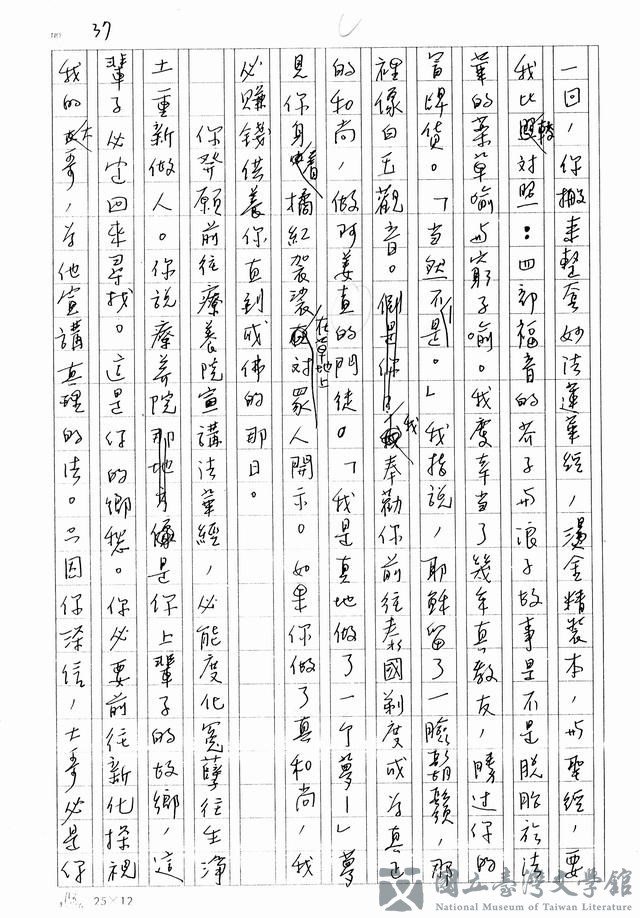 37
一回，你搬來整套妙法蓮華經，燙金精裝本，与聖經，要
我比對對照：四部福音的芥子与浪子故事是不是脫胎於法
華的藥草喻与窮子喻。我虔幸当了幾年真教友，勝过你的
冒牌貨。「当然不是。」我指說，耶穌留了一臉鬍鬚，那
裡像白玉觀音。倒是你，我奉勸你前往泰國剃度成为真正
的和尚，做阿姜查的門徒。「我是真地做了一个夢—」夢
見你身着橘紅袈裟在草地上对眾人開示。如果你做了真和尚，我
必賺錢供養你直到成佛的那日。
你發願前往療養院宣講法華經，必能度化冤孽往生淨
土—重新做人。你說療养院那地方像是你上輩子的故鄉，這
輩子必定回來尋找。這是你的鄉愁。你必要前往新化探視
我的大哥，为他宣講真理的法。只因你深信，大哥必是你
25×12
國立臺灣文學館
National Museum of Taiwan Literature